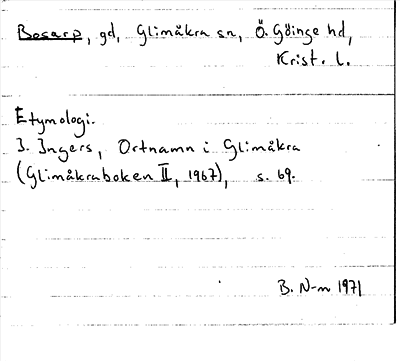 Bosarp, gd, Glimåkra sn, Ö. Göinge hd,
Krist. l.
Etymologi.
I. Ingers, Ortnamn i Glimåkra
(Glimåkraboken II, 1967), s. 69.
B. N-m 1971